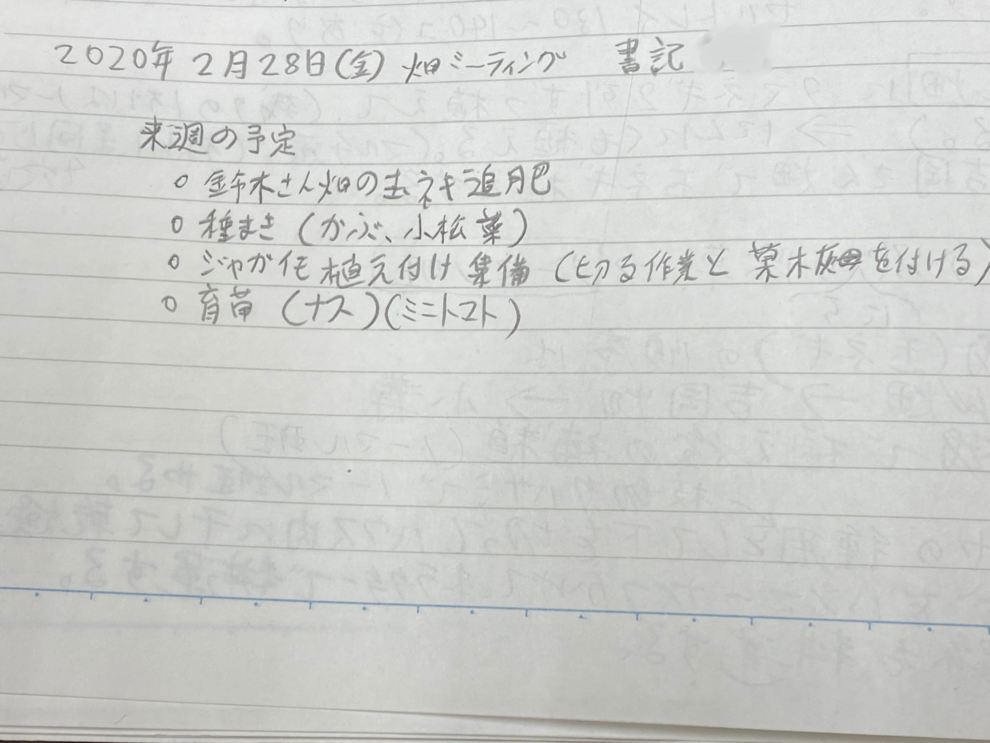 2020年 2月28日(金) 畑ミーティング 書記
来週の予定
○ 鈴木さん畑の玉ネギ追肥
○ 種まき (かぶ、小松菜)
○ ジャガイモ植え付け準備 (切る作業と草木灰を付ける)
○ 育苗 (ナス)(ミニトマト)